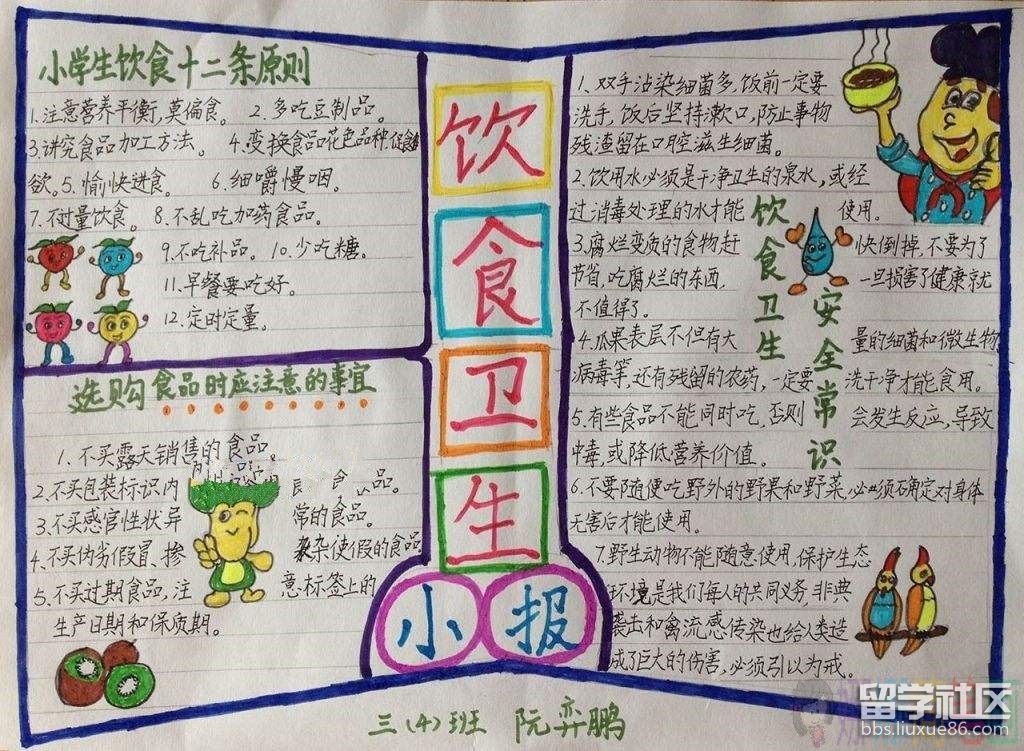 小学生饮食十二条原则
1.注意营养平衡,莫偏食。 2.多吃豆制品。
3.讲究食品加工方法。 4.变换食品花色品种,促食
欲。5.愉快进食。 6.细嚼慢咽。
7.不过量饮食。 8.不乱吃加药食品。
9.不吃补品。 10.少吃糖。
11.早餐要吃好。
12.定时定量。
选购食品时应注意的事宜
1.不买露天销售的食品。
2.不买包装标识内 食 品。
3.不买感官性状异 常的食品。
4.不买伪劣假冒、掺 杂使假的食品
5.不买过期食品,注 意标签上的
生产日期和保质期。
饮
食
卫
生
小报
饮食卫生
安全常识
1.双手沾染细菌多,饭前一定要
洗手,饭后坚持漱口,防止事物
残渣留在口腔滋生细菌。
2.饮用水必须是干净卫生的泉水,或经
过消毒处理的水才能 使用。
3.腐烂变质的食物赶 快倒掉,不要为了
节省,吃腐烂的东西, 一旦损害了健康就
不值得了。
4.瓜果表层不但有大 量的细菌和微生物
病毒等,还有残留的农药,一定要 洗干净才能食用。
5.有些食品不能同时吃,否则 会发生反应,导致
中毒,或降低营养价值。
6.不要随便吃野外的野果和野菜,必须确定对身体
无害后才能使用。
7.野生动物不能随意使用,保护生态
环境是我们每人的共同义务,非典
袭击和禽流感传染也给人类造
成了巨大的伤害,必须引以为戒。
三(4)班 阮弈鹏
留学社区
bbs.liuxue86.com